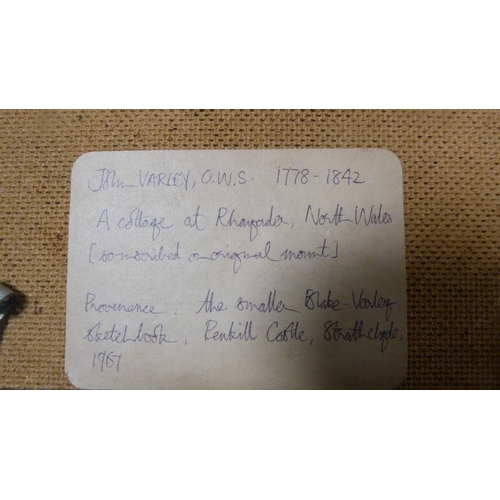 John VARLEY, O.W.S. 1778-1842
A cottage at Rhayader, North Wales
[so inscribed on original mount]
Provenance. the smaller Blake-Varley
sketchbook, Penkill Castle, Strathclyde,
1967